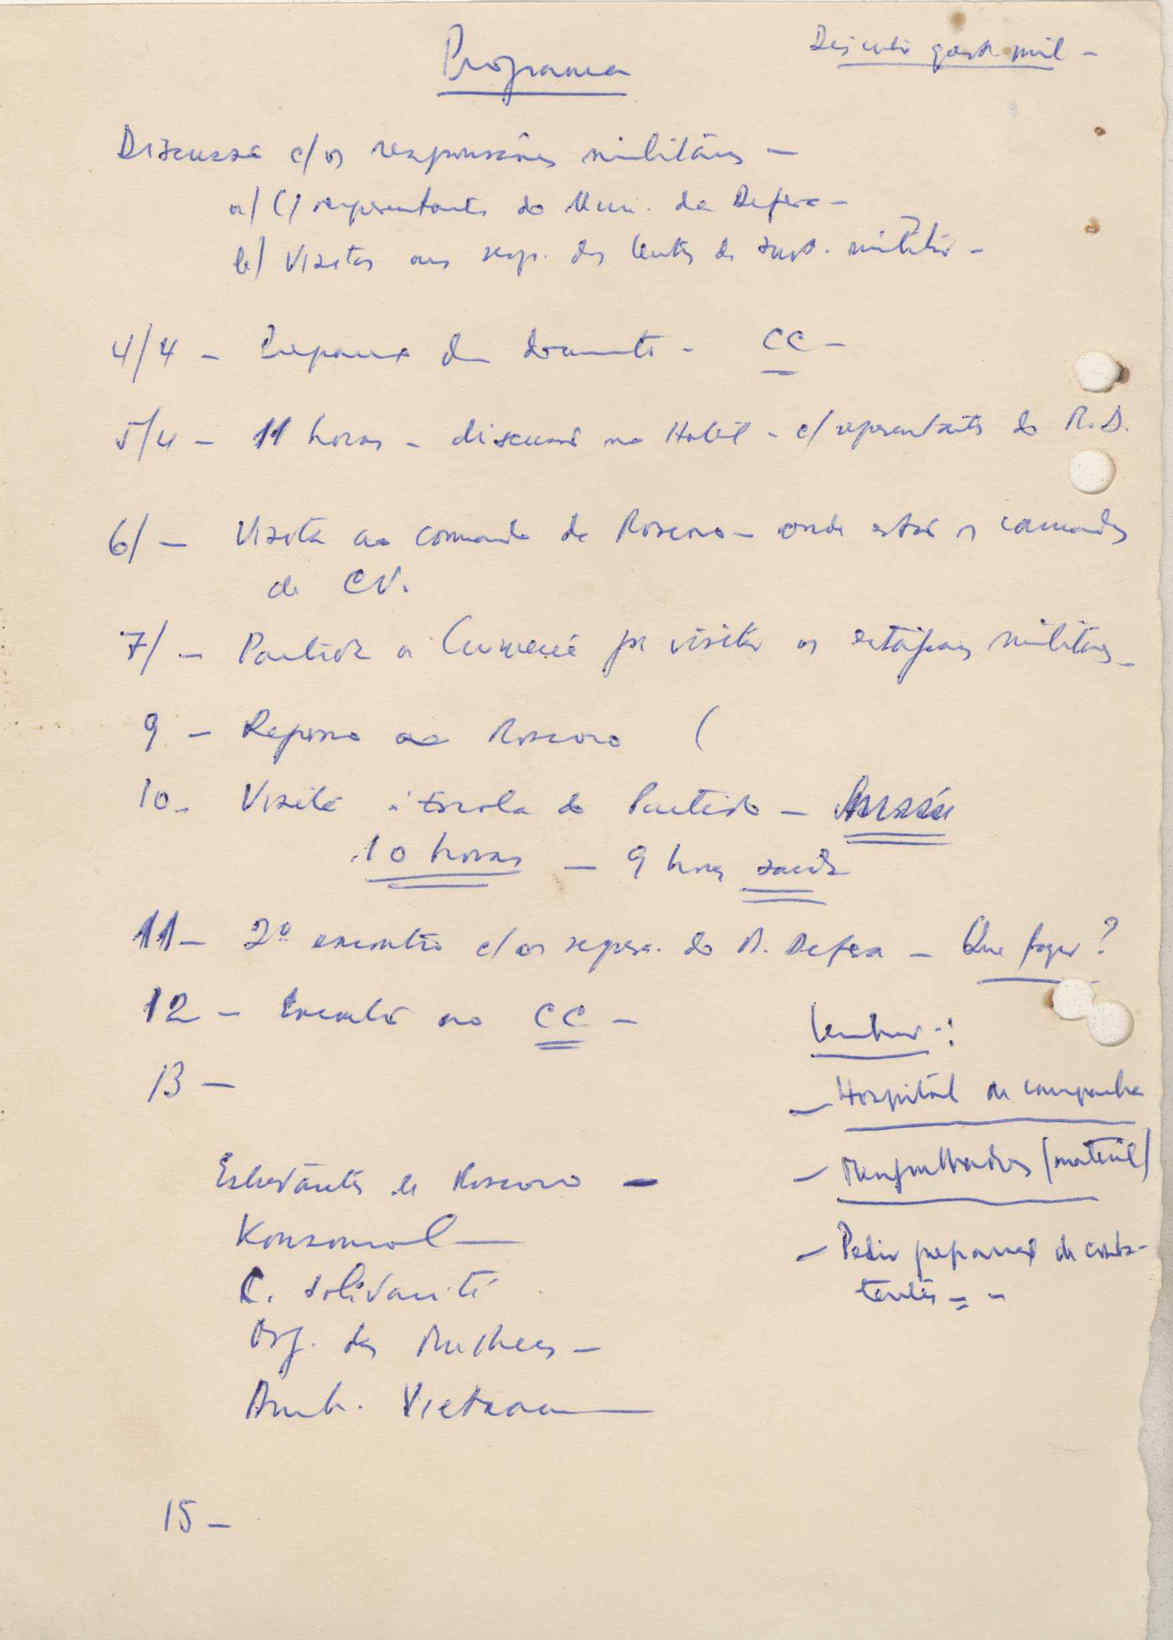 Programa
Discussão c/os responsáveis militares -
a/ C/ representantes do Min. da Defesa -
b/ Visitas aos resp. dos Centros de inst. militar -
4/4 - Preparação de documentos - CC -
5/4 - 11 horas - discussão no Hotel - c/ representantes do M. D.
6/ - Visita ao comando de Moscovo - onde estão os camaradas
de CV.
7/ - Partida a Crimeia para visitar os estágios militares -
9 - Regresso a Moscovo (
10 - Visita à Escola do Partido -
10 horas - 9 horas saída
11 - 2º encontro c/os repres. do M. Defesa - Que fazer?
12 - Encontro no CC -
13 -
Lembrar -:
- Hospital de campanha
- (material)
- Pedir preparação de comba-
tentes - -
Estudantes de Moscovo -
Konsomol -
C. Solidarité
Org. das Mulheres -
Amb. Vietnam -
15 -